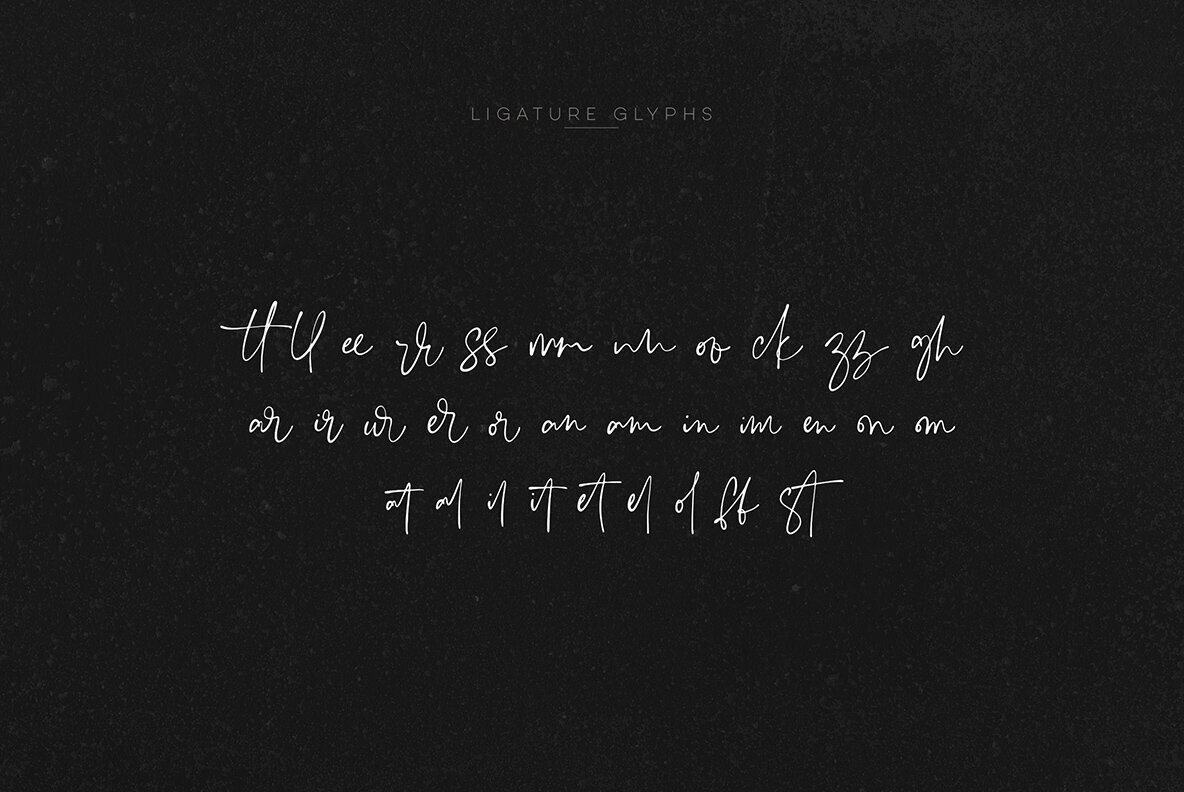 LIGATURE GLYPHS
tt ll ee rr ss mm nn oo ck zz gh
ar ir ur er or an am in im en on om
at al il it et el ol ff st